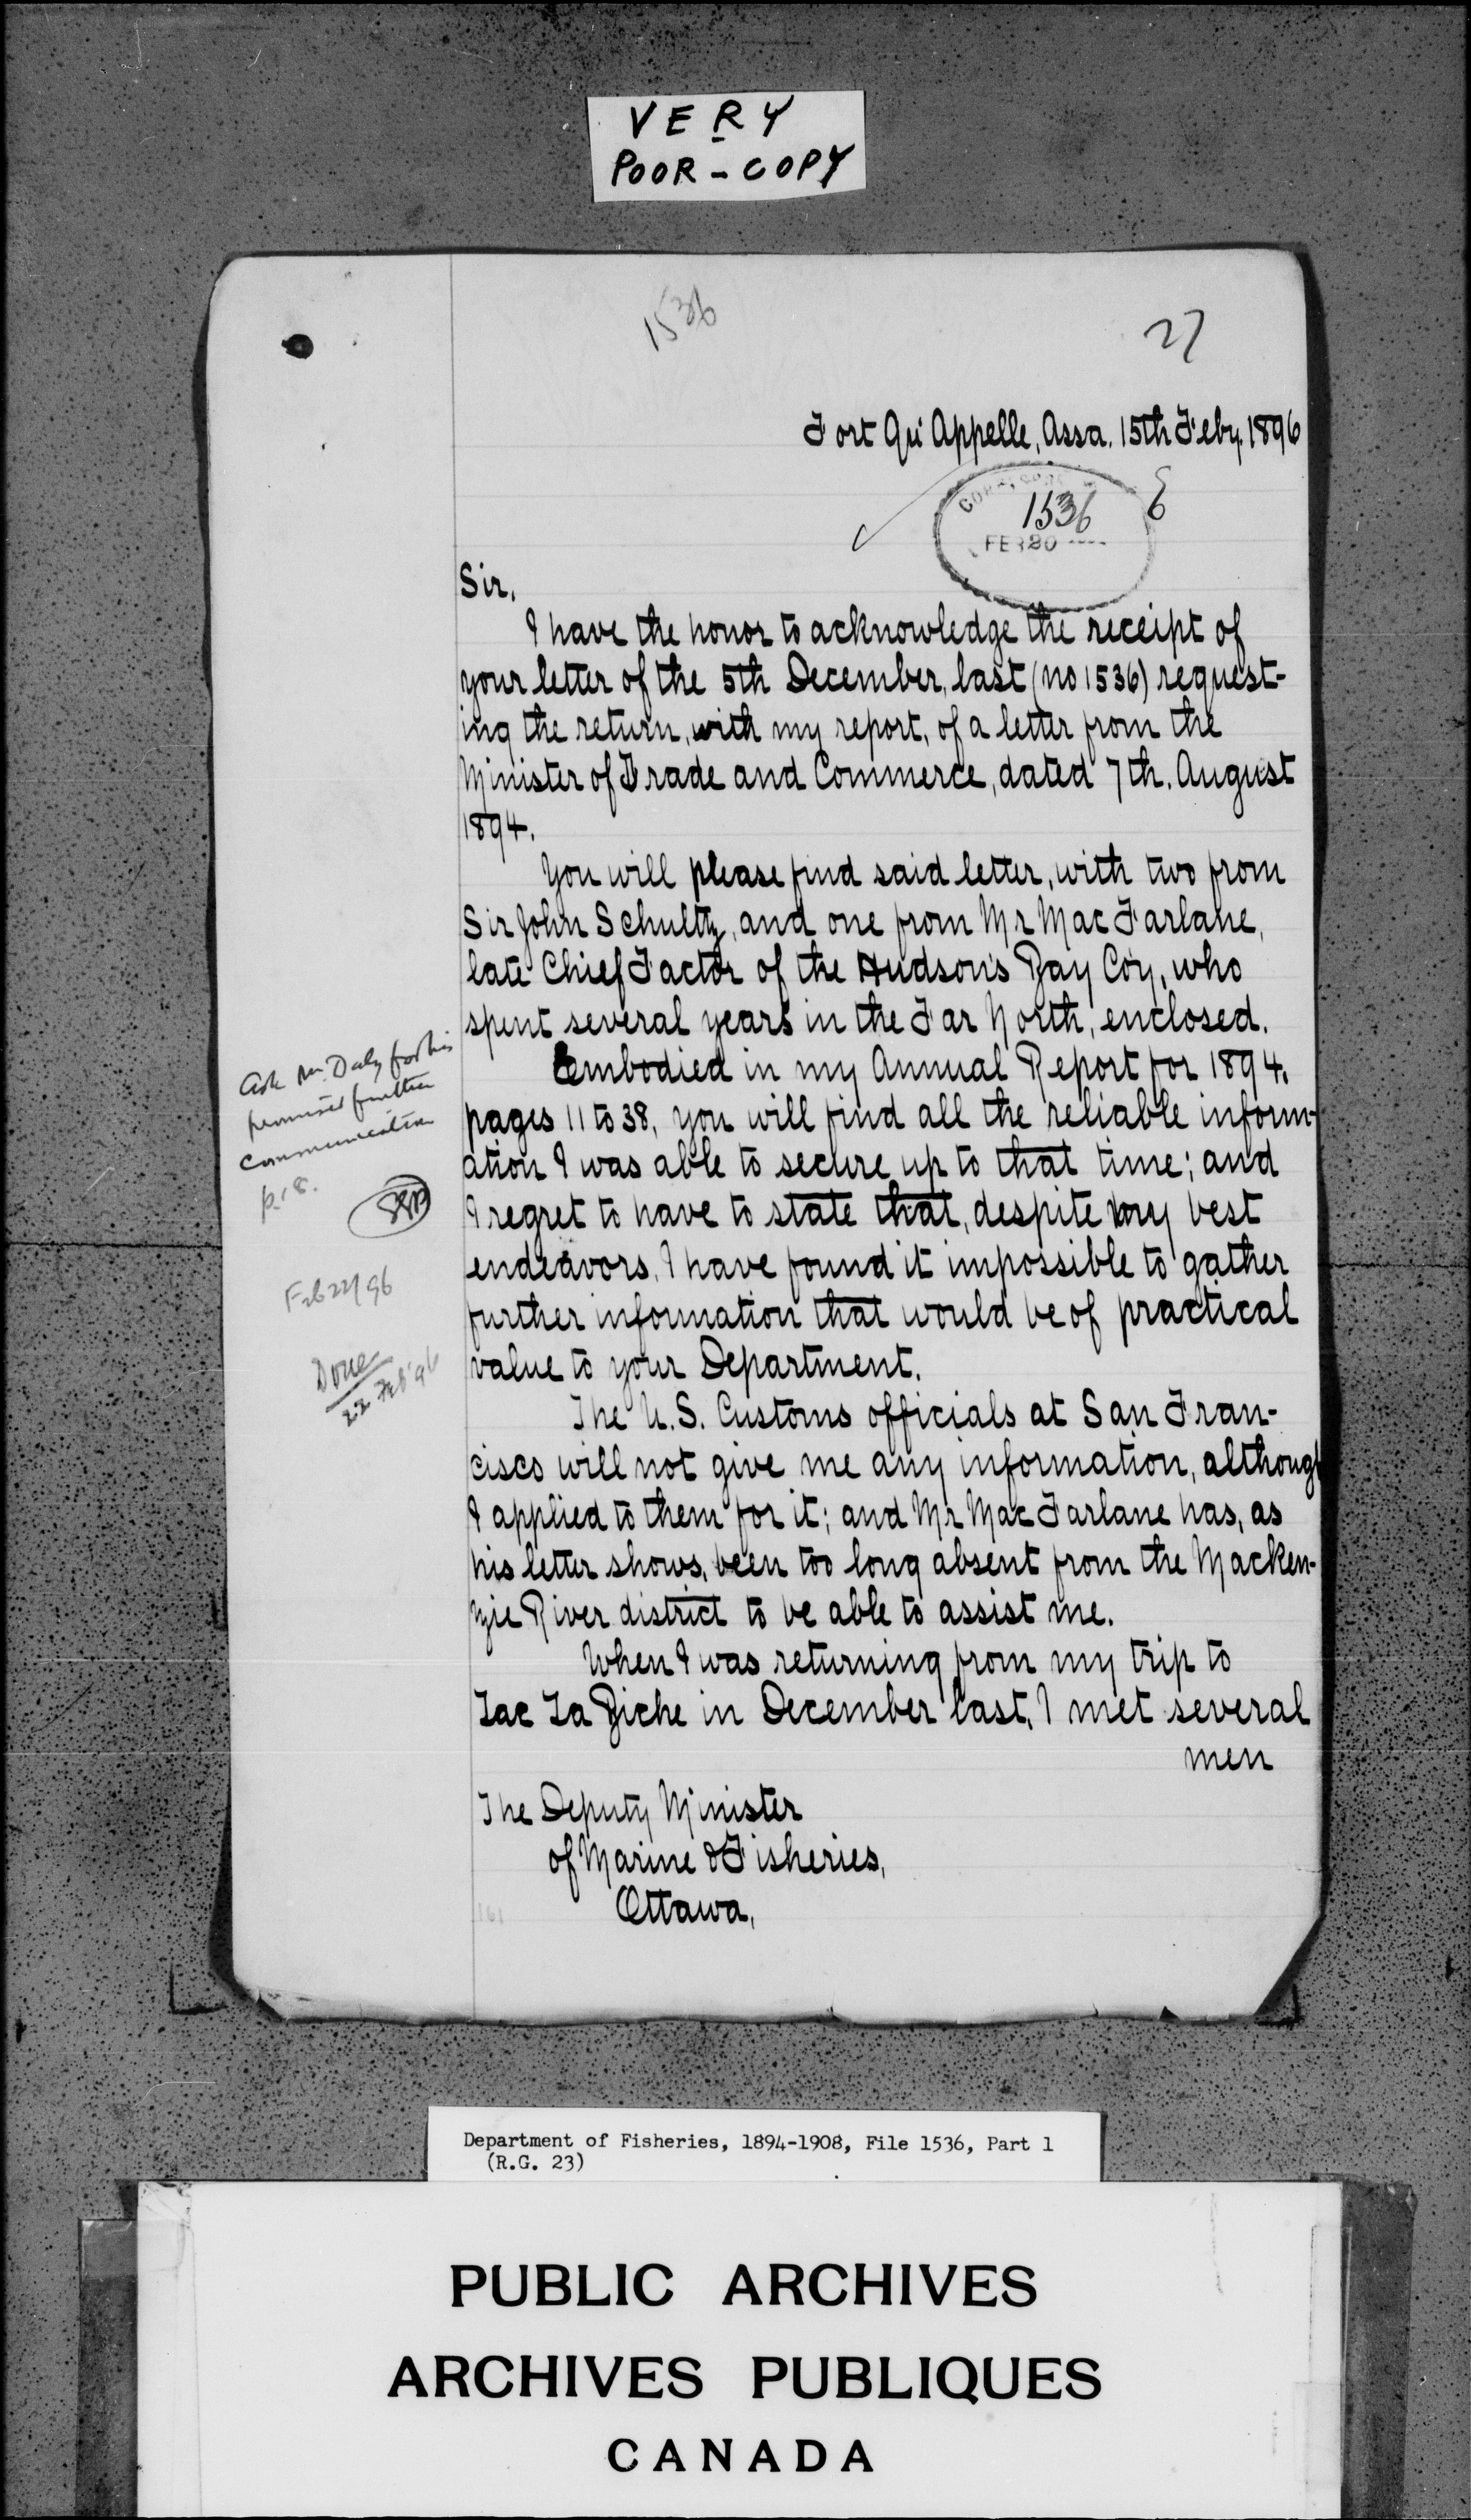 VERY
POOR - COPY
1536
27
Fort Qu'Appelle, Assa. 15th Feby. 1896
1536
FEB 20
Sir,
I have the honor to acknowledge the receipt of
your letter of the 5th December, last (no 1536) request-
ing the return, with my report, of a letter from the
Minister of Trade and Commerce, dated 7th. August
1894.
You will please find said letter, with two from
Sir John Schultz, and one from Mr MacFarlane,
late Chief Factor of the Hudson's Bay Coy, who
spent several years in the Far North, enclosed.
Embodied in my Annual Report for 1894,
pages 11 to 38, you will find all the reliable inform-
ation I was able to secure up to that time; and
I regret to have to state that, despite my best
endeavors, I have found it impossible to gather
further information that would be of practical
value to your Department.
The U.S. Customs officials at San Fran-
cisco will not give me any information, although
I applied to them for it; and Mr MacFarlane has, as
his letter shows, been too long absent from the Macken-
zie River district to be able to assist me.
When I was returning from my trip to
Lac La Biche in December last, I met several
men
The Deputy Minister
of Marine & Fisheries,
Ottawa,
Ask Mr. Daly for his
promised further
communication
p. 18.
Feb 22/96
Done
22 Feb '96
Department of Fisheries, 1894-1908, File 1536, Part 1
(R.G. 23)
PUBLIC ARCHIVES
ARCHIVES PUBLIQUES
CANADA